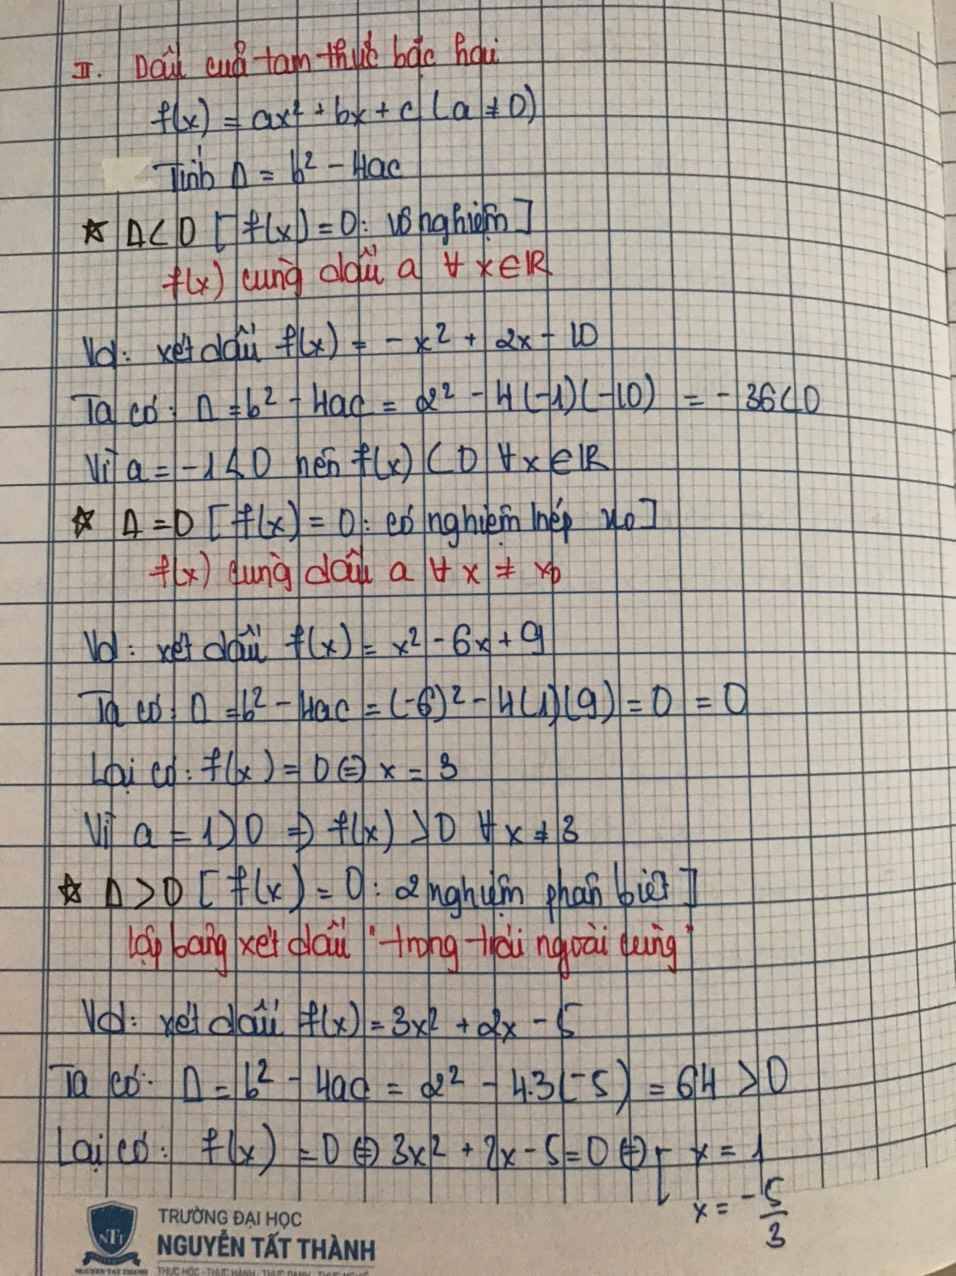 II. Dấu của tam thức bậc hai
f(x) = ax² + bx + c (a ≠ 0)
Tính Δ = b² - 4ac
☆ Δ < 0 [f(x) = 0: vô nghiệm]
f(x) cùng dấu a ∀ x ∈ ℝ
Vd: xét dấu f(x) = -x² + 2x - 10
Ta có: Δ = b² - 4ac = 2² - 4(-1)(-10) = -36 < 0
Vì a = -1 < 0 nên f(x) < 0 ∀ x ∈ ℝ
☆ Δ = 0 [f(x) = 0: có nghiệm kép x₀]
f(x) cùng dấu a ∀ x ≠ x₀
Vd: xét dấu f(x) = x² - 6x + 9
Ta có: Δ = b² - 4ac = (-6)² - 4(1)(9) = 0 = 0
Lại có: f(x) = 0 ⇔ x = 3
Vì a = 1 > 0 ⇒ f(x) > 0 ∀ x ≠ 3
☆ Δ > 0 [f(x) = 0: 2 nghiệm phân biệt]
lập bảng xét dấu "trong trái ngoài cùng"
Vd: xét dấu f(x) = 3x² + 2x - 5
Ta có: Δ = b² - 4ac = 2² - 4.3(-5) = 64 > 0
Lại có: f(x) = 0 ⇔ 3x² + 2x - 5 = 0 ⇔ [ x = 1
x = -5/3
TRƯỜNG ĐẠI HỌC
NGUYỄN TẤT THÀNH
NTT
NGUYEN TAT THANH